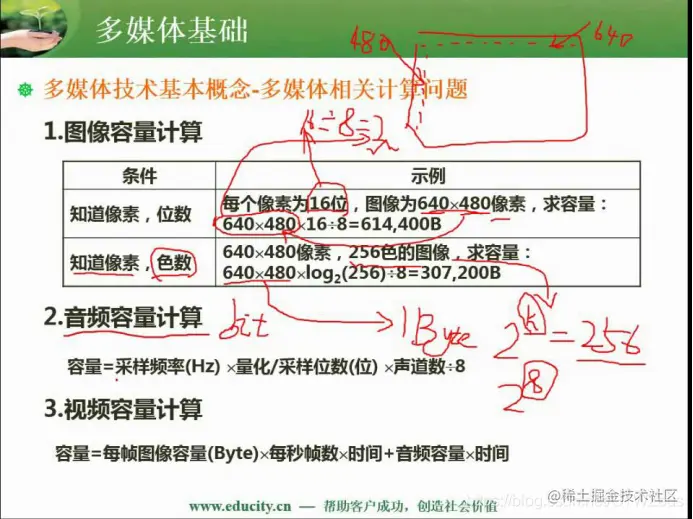 多媒体基础
480
640
多媒体技术基本概念-多媒体相关计算问题
1.图像容量计算
16÷8=2
条件
示例
知道像素，位数
每个像素为16位，图像为640×480像素，求容量：
640×480×16÷8=614,400B
知道像素，色数
640×480像素，256色的图像，求容量：
640×480×log₂(256)÷8=307,200B
2.音频容量计算
bit
1Byte
2 = 256
2⁸
容量=采样频率(Hz) ×量化/采样位数(位) ×声道数÷8
3.视频容量计算
容量=每帧图像容量(Byte)×每秒帧数×时间+音频容量×时间
www.educity.cn — 帮助客户成功，创造社会价值
@稀土掘金技术社区